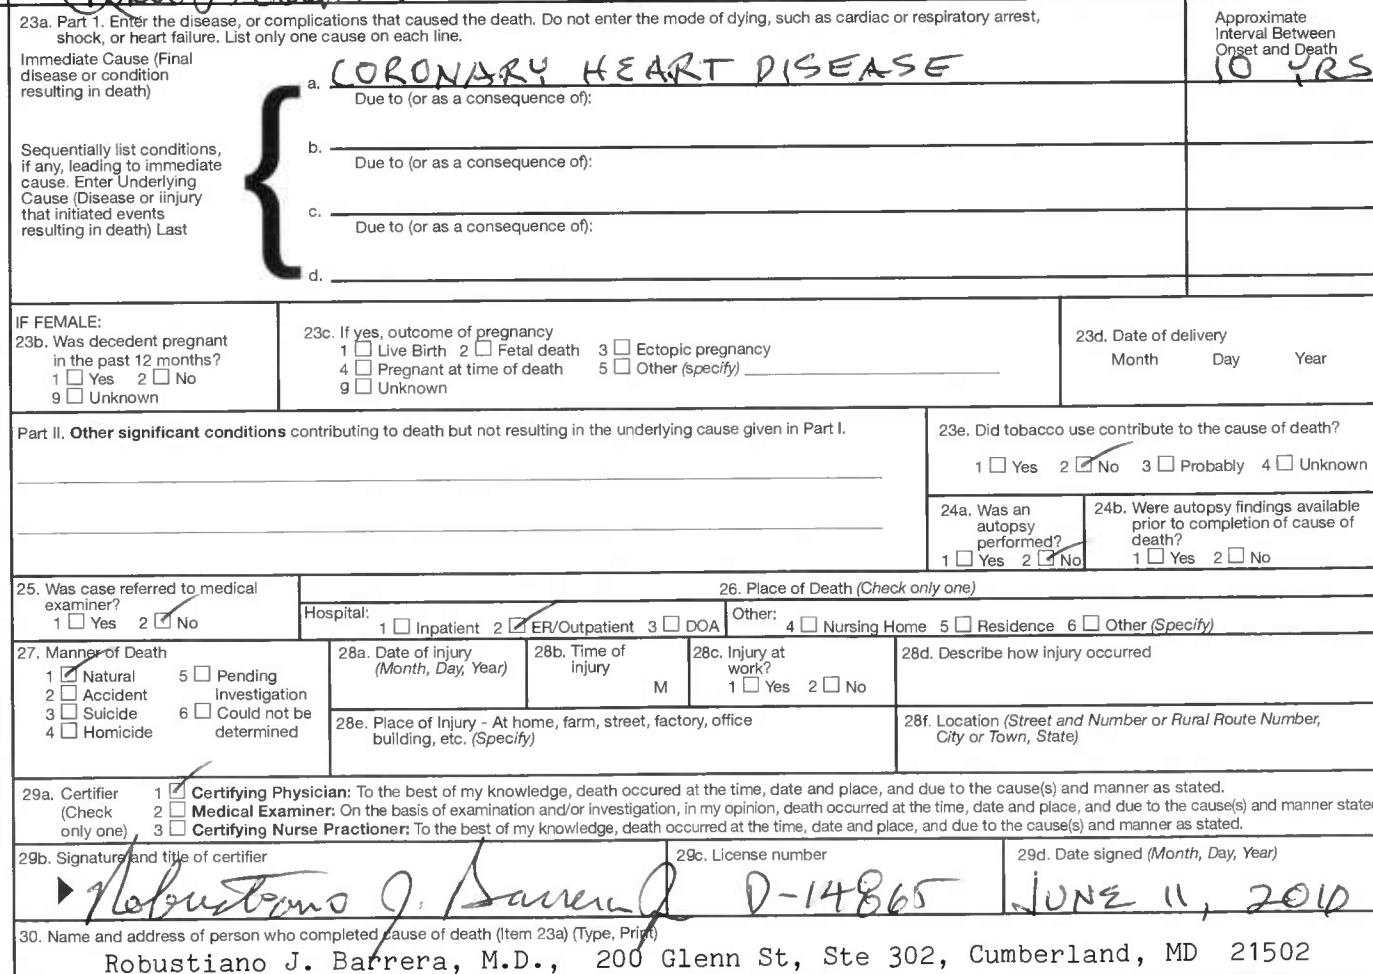 23a. Part 1. Enter the disease, or complications that caused the death. Do not enter the mode of dying, such as cardiac or respiratory arrest,
shock, or heart failure. List only one cause on each line.
Approximate
Interval Between
Onset and Death
Immediate Cause (Final
disease or condition
resulting in death)
a. CORONARY HEART DISEASE 10 YRS
Due to (or as a consequence of):
Sequentially list conditions,
if any, leading to immediate
cause. Enter Underlying
Cause (Disease or iinjury
that initiated events
resulting in death) Last
b.
Due to (or as a consequence of):
c.
Due to (or as a consequence of):
d.
IF FEMALE:
23b. Was decedent pregnant
in the past 12 months?
1 ☐ Yes 2 ☐ No
9 ☐ Unknown
23c. If yes, outcome of pregnancy
1 ☐ Live Birth 2 ☐ Fetal death 3 ☐ Ectopic pregnancy
4 ☐ Pregnant at time of death 5 ☐ Other (specify)
9 ☐ Unknown
23d. Date of delivery
Month Day Year
Part II. Other significant conditions contributing to death but not resulting in the underlying cause given in Part I.
23e. Did tobacco use contribute to the cause of death?
1 ☐ Yes 2 ☑ No 3 ☐ Probably 4 ☐ Unknown
24a. Was an
autopsy
performed?
1 ☐ Yes 2 ☑ No
24b. Were autopsy findings available
prior to completion of cause of
death?
1 ☐ Yes 2 ☐ No
25. Was case referred to medical
examiner?
1 ☐ Yes 2 ☑ No
26. Place of Death (Check only one)
Hospital: 1 ☐ Inpatient 2 ☑ ER/Outpatient 3 ☐ DOA
Other: 4 ☐ Nursing Home 5 ☐ Residence 6 ☐ Other (Specify)
27. Manner of Death
1 ☑ Natural 5 ☐ Pending
2 ☐ Accident investigation
3 ☐ Suicide 6 ☐ Could not be
4 ☐ Homicide determined
28a. Date of injury
(Month, Day, Year)
28b. Time of
injury
M
28c. Injury at
work?
1 ☐ Yes 2 ☐ No
28d. Describe how injury occurred
28e. Place of Injury - At home, farm, street, factory, office
building, etc. (Specify)
28f. Location (Street and Number or Rural Route Number,
City or Town, State)
29a. Certifier
(Check
only one)
1 ☑ Certifying Physician: To the best of my knowledge, death occured at the time, date and place, and due to the cause(s) and manner as stated.
2 ☐ Medical Examiner: On the basis of examination and/or investigation, in my opinion, death occurred at the time, date and place, and due to the cause(s) and manner state
3 ☐ Certifying Nurse Practioner: To the best of my knowledge, death occurred at the time, date and place, and due to the cause(s) and manner as stated.
29b. Signature and title of certifier
Robustiano J. Barrera
29c. License number
D-14865
29d. Date signed (Month, Day, Year)
JUNE 11, 2010
30. Name and address of person who completed cause of death (Item 23a) (Type, Print)
Robustiano J. Barrera, M.D., 200 Glenn St, Ste 302, Cumberland, MD 21502